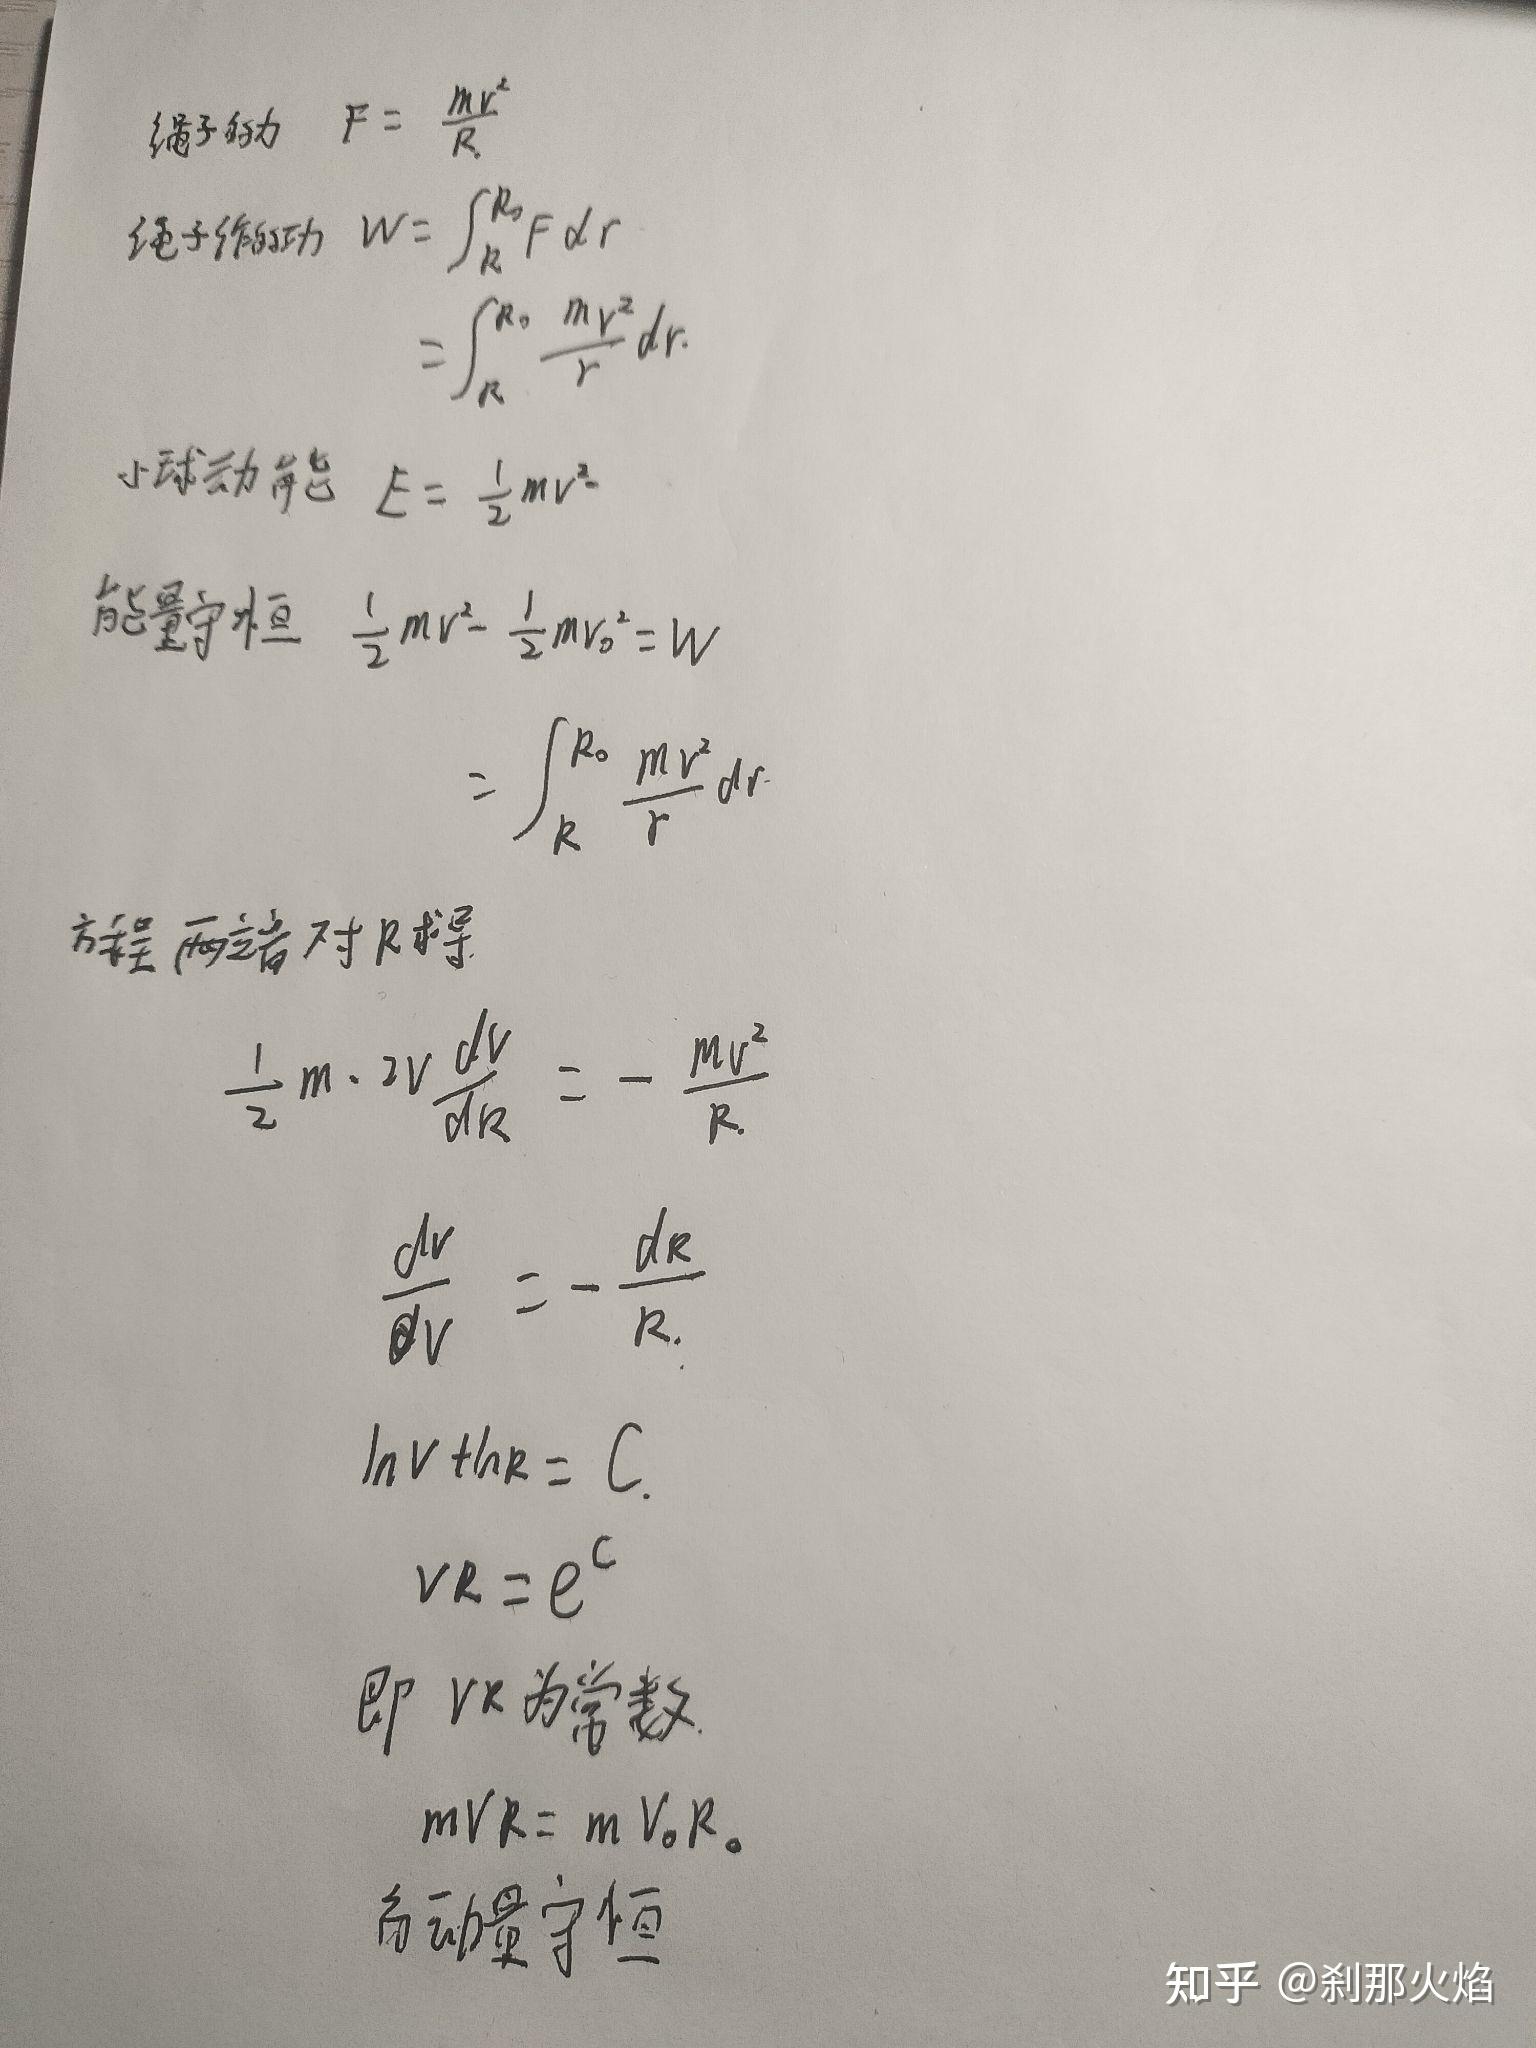 绳子的力 F = \frac{mv^2}{R}
绳子作的功 W = \int_{R}^{R_0} F dr
= \int_{R}^{R_0} \frac{mv^2}{r} dr.
小球动能 E = \frac{1}{2} mv^2
能量守恒 \frac{1}{2} mv^2 - \frac{1}{2} mv_0^2 = W
= \int_{R}^{R_0} \frac{mv^2}{r} dr.
方程两端对R求导
\frac{1}{2} m · 2v \frac{dv}{dR} = - \frac{mv^2}{R.}
\frac{dv}{dV} = - \frac{dR}{R.}
lnV + lnR = C.
VR = e^C
即 VR为常数.
mVR = mV_0R_0
角动量守恒
知乎 @刹那火焰